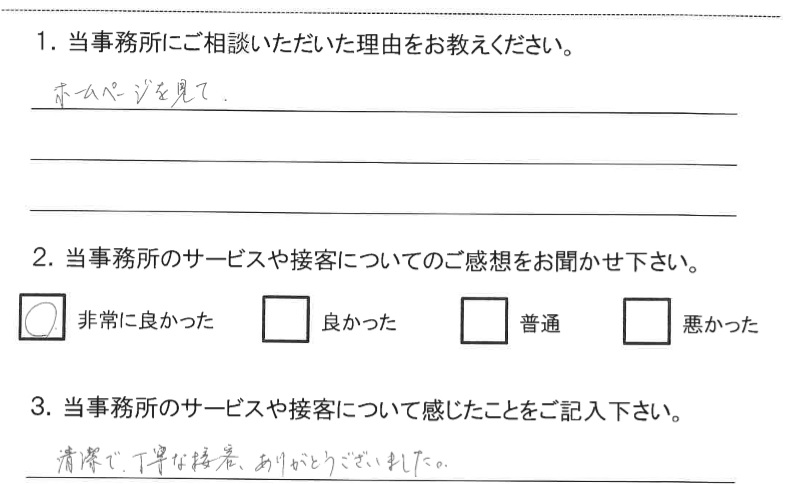 1. 当事務所にご相談いただいた理由をお教えください。
ホームページを見て.
2. 当事務所のサービスや接客についてのご感想をお聞かせ下さい。
非常に良かった 良かった 普通 悪かった
3. 当事務所のサービスや接客について感じたことをご記入下さい。
清潔で、丁寧な接客、ありがとうございました。